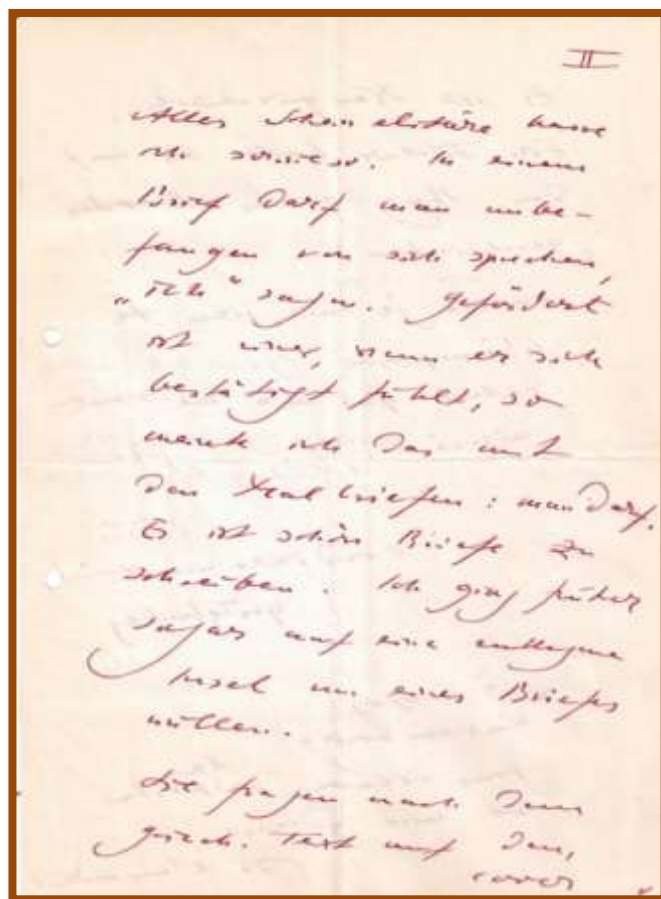 II
Alles Scheinelitäre hasse
ich sowieso. In einem
Brief darf man unbe-
fangen von sich sprechen,
„Ich“ sagen. Gefördert
ist einer, wenn er sich
bestätigt fühlt, so
meinte ich das mit
den briefen: man darf.
Es ist schön Briefe zu
schreiben. Ich ging früher
sogar auf eine entlegene
Insel um eines Briefes
willen.
Sie fragen nach dem
griech. Text auf dem,
cover